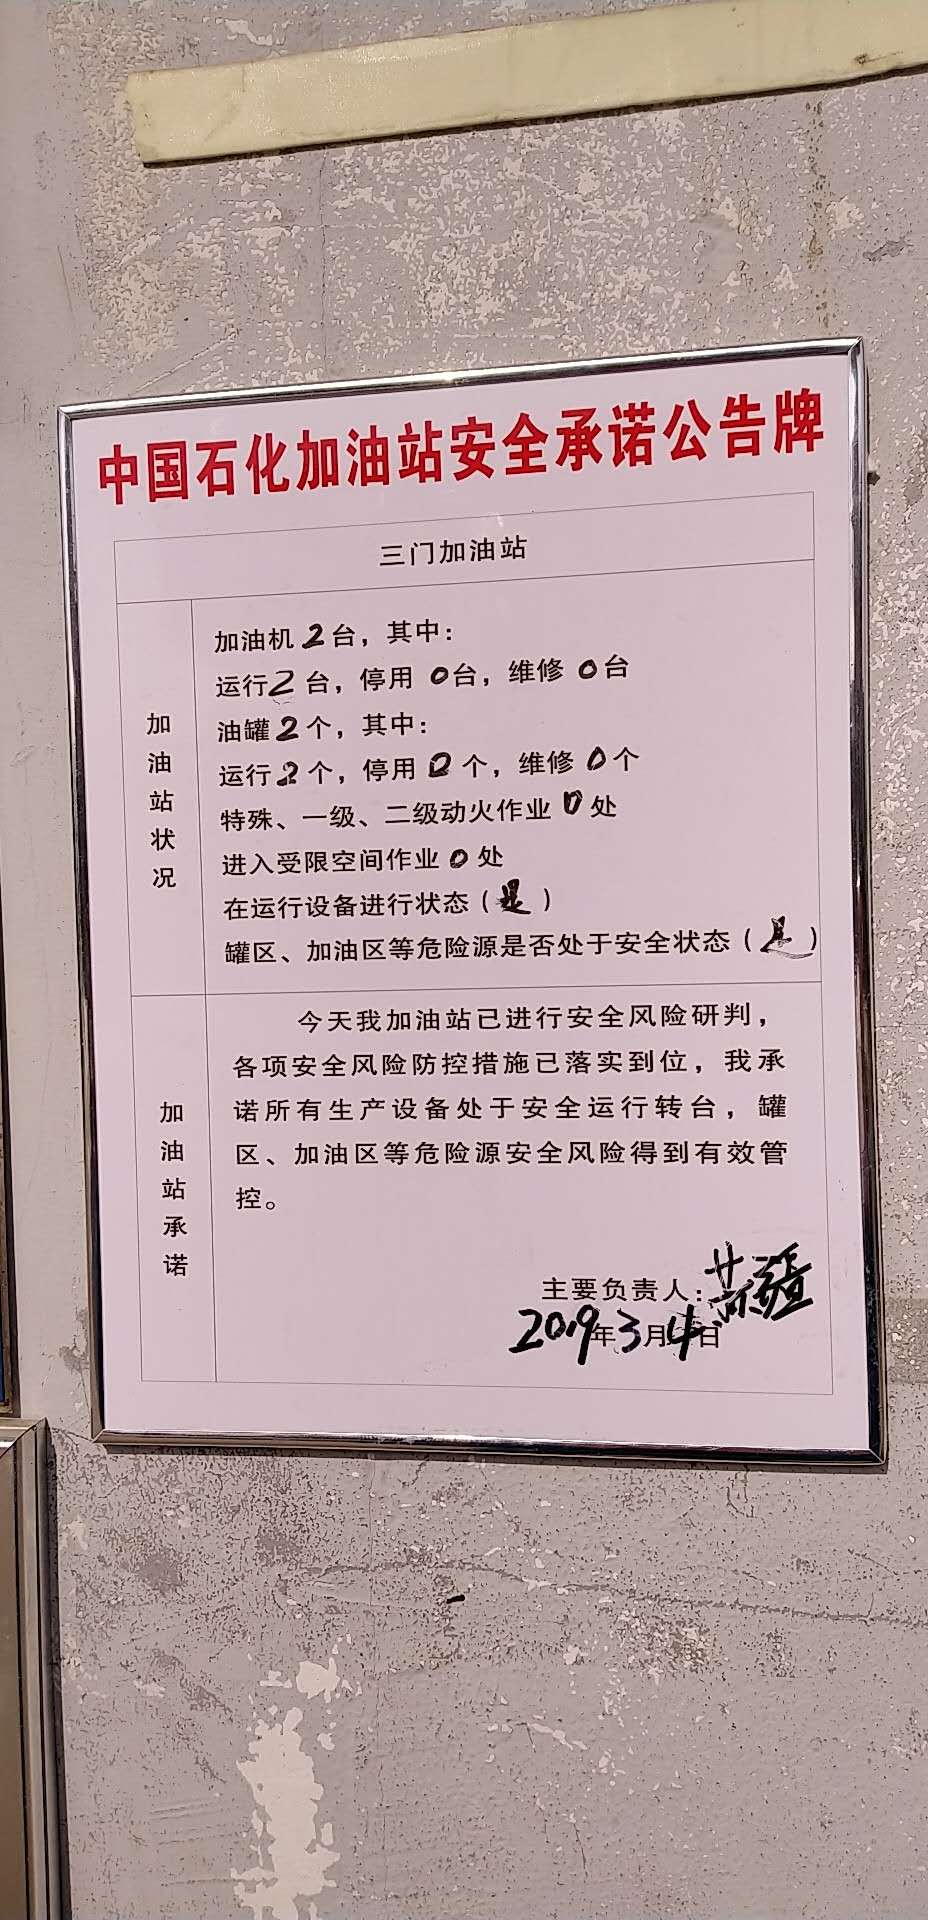 中国石化加油站安全承诺公告牌
三门加油站
加油站状况
加油机2台，其中：
运行2台，停用0台，维修0台
油罐2个，其中：
运行2个，停用0个，维修0个
特殊、一级、二级动火作业0处
进入受限空间作业0处
在运行设备进行状态（是）
罐区、加油区等危险源是否处于安全状态（是）
加油站承诺
今天我加油站已进行安全风险研判，
各项安全风险防控措施已落实到位，我承
诺所有生产设备处于安全运行转台，罐
区、加油区等危险源安全风险得到有效管
控。
主要负责人：
2019年3月4日